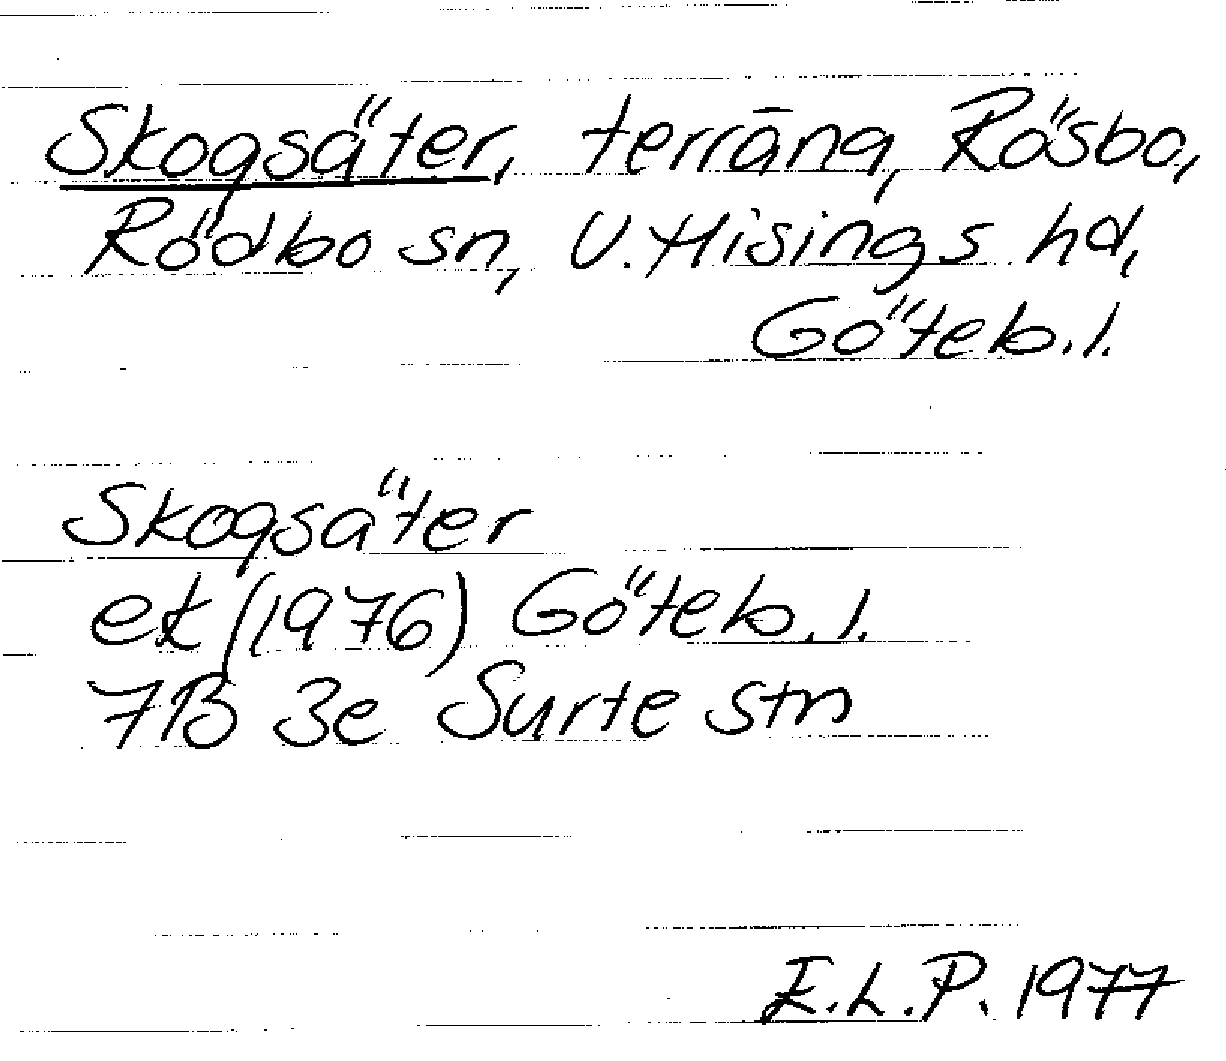 Skogsäter, terräng, Rösbo,
Rödbo sn, V. Hisings hd,
Göteb. l.
Skogsäter
ek (1976) Göteb. l.
7B 3e Surte stn
E.L.P. 1977